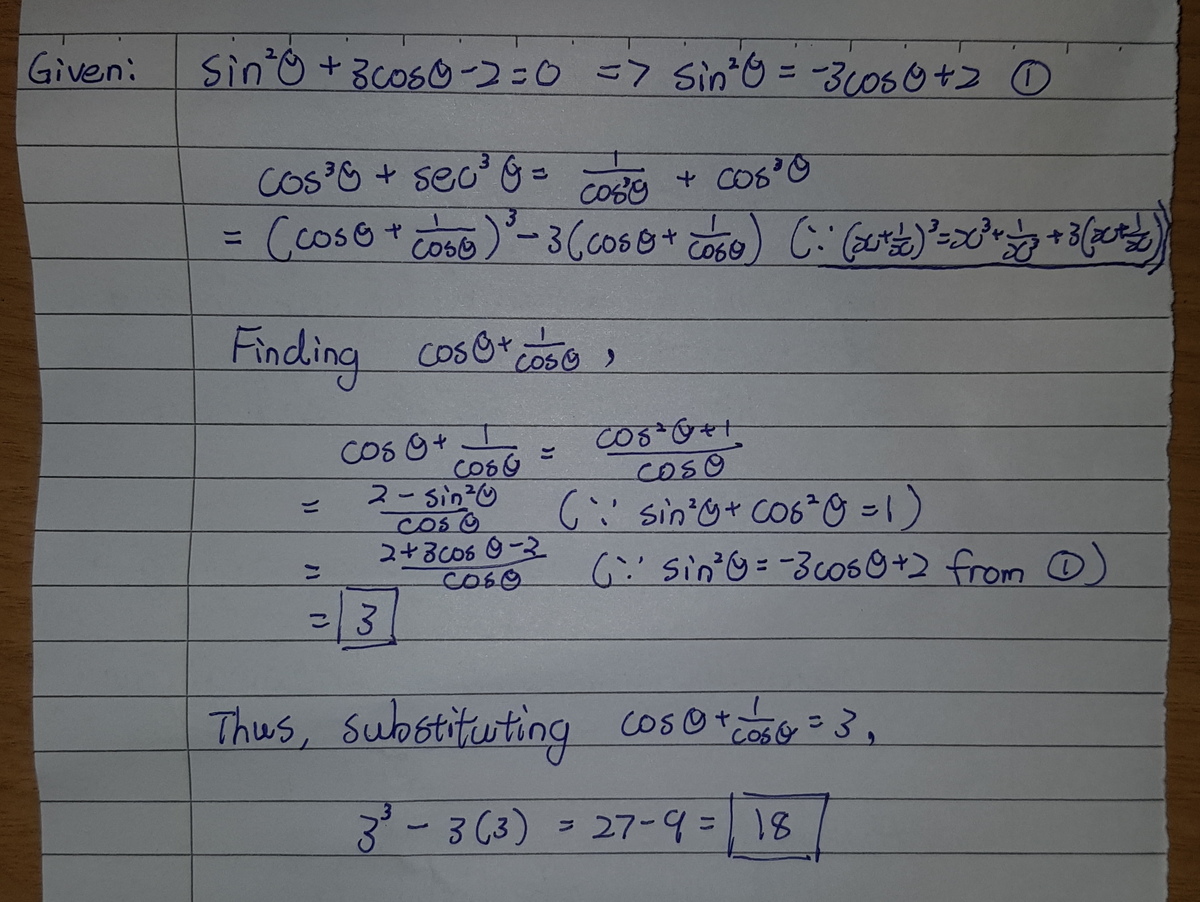 Given: sin²θ + 3cosθ - 2 = 0 => sin²θ = -3cosθ + 2 ①
cos³θ + sec³θ = 1/cos³θ + cos³θ
= (cosθ + 1/cosθ)³ - 3(cosθ + 1/cosθ) (∵ (x+1/x)³ = x³ + 1/x³ + 3(x+1/x))
Finding cosθ + 1/cosθ ,
cosθ + 1/cosθ = cos²θ+1/cosθ
= 2 - sin²θ/cosθ (∵ sin²θ + cos²θ = 1)
= 2+3cosθ-2/cosθ (∵ sin²θ = -3cosθ+2 from ①)
= 3
Thus, substituting cosθ + 1/cosθ = 3,
3³ - 3(3) = 27 - 9 = 18